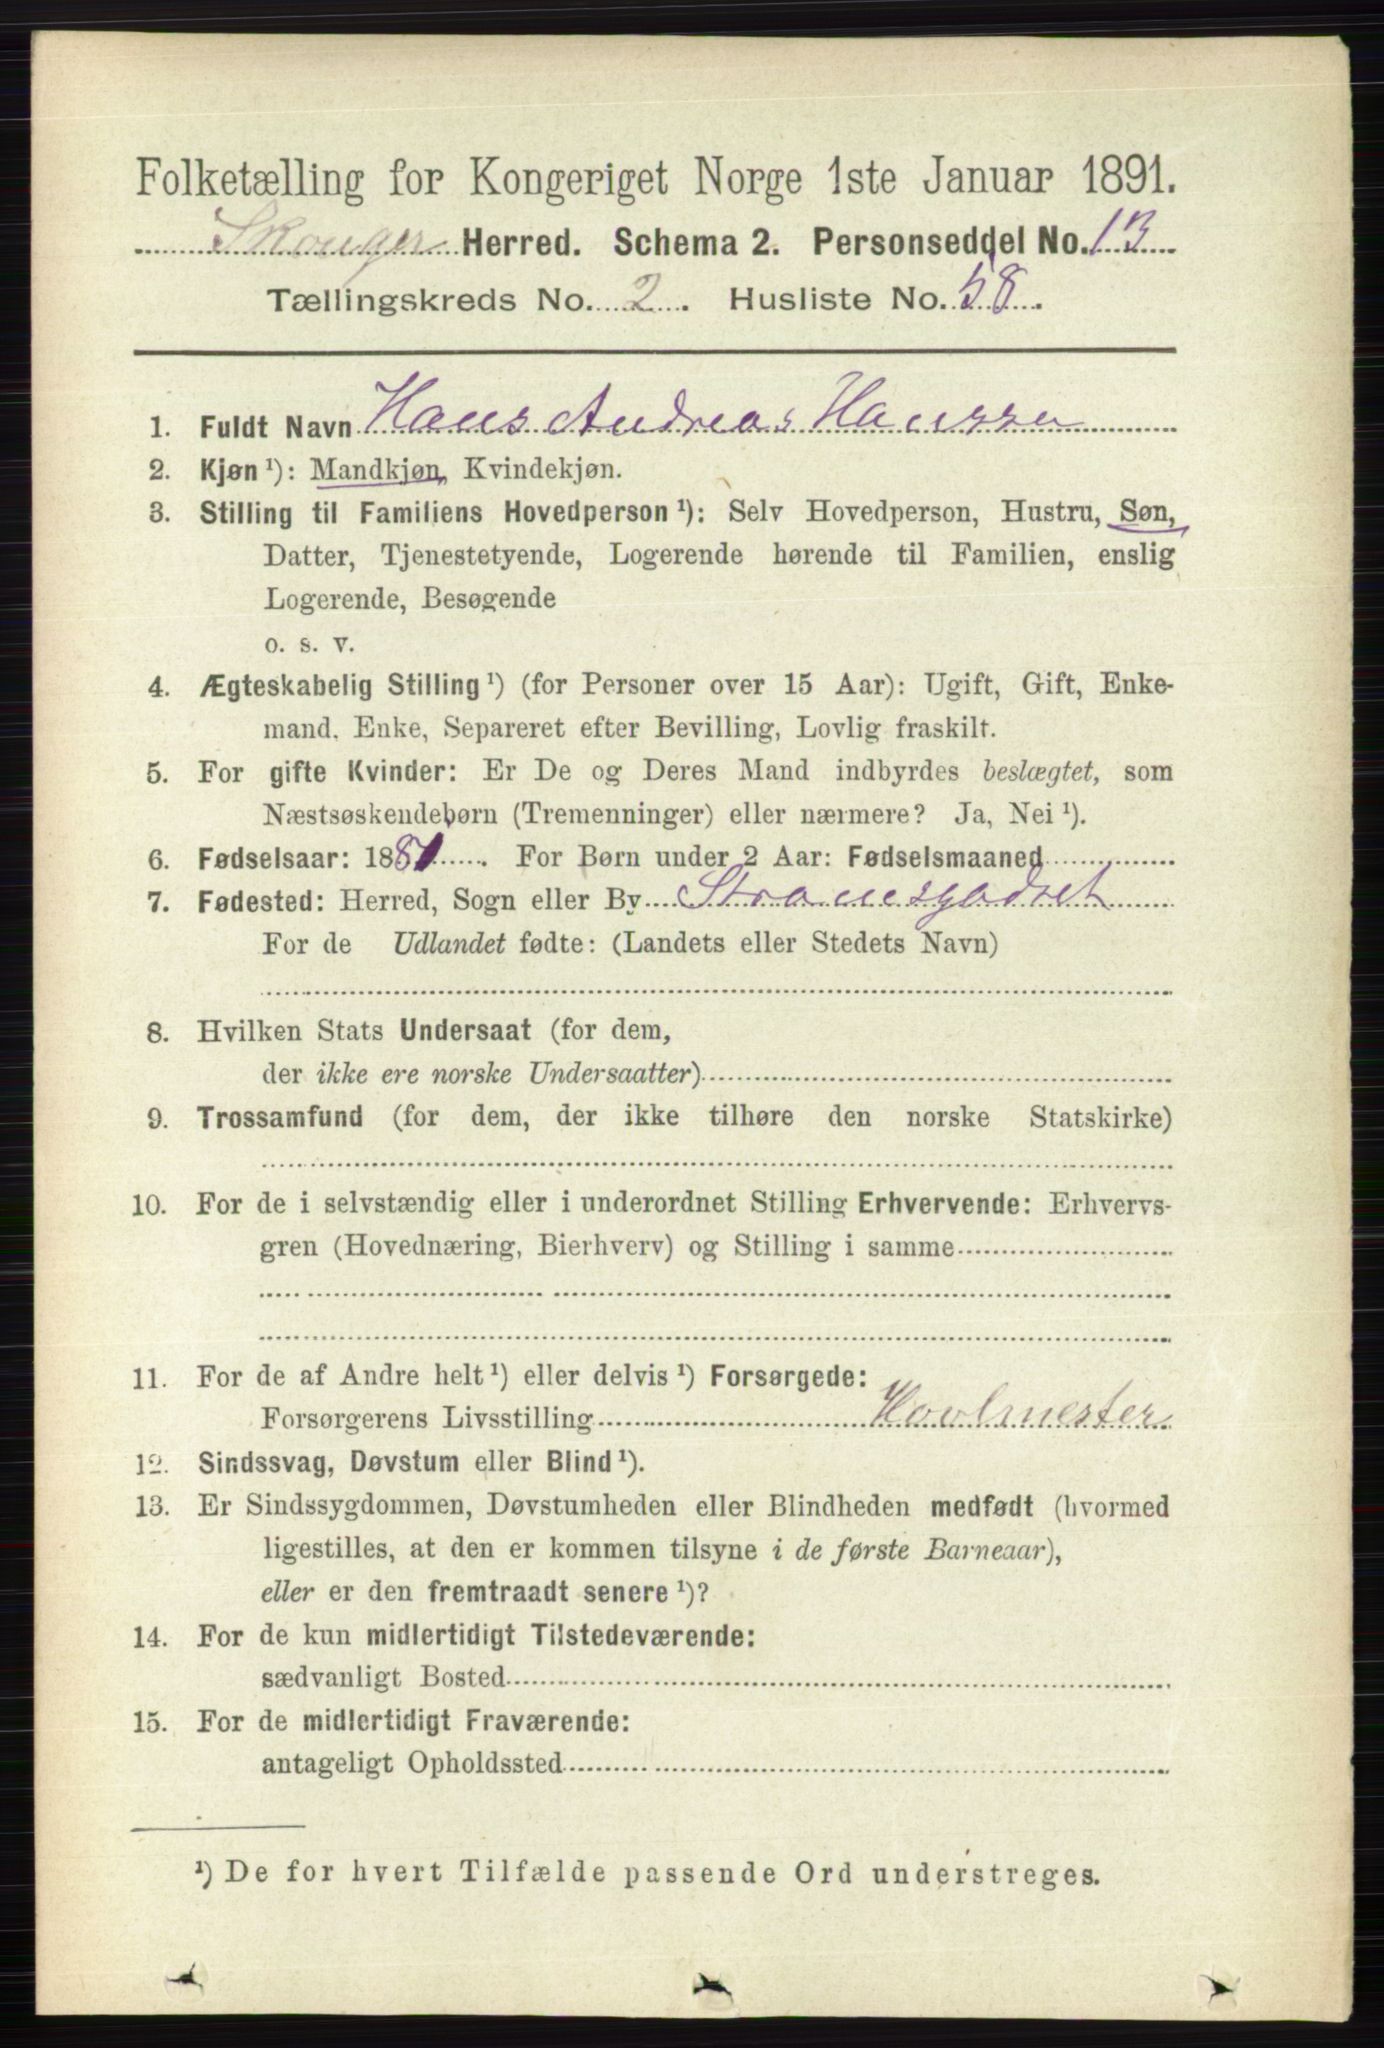 Folketælling for Kongeriget Norge 1ste Januar 1891.
Skouger Herred. Schema 2. Personseddel No. 13
Tællingskreds No. 2. Husliste No. 58.
1. Fuldt Navn Hans Andreas Hanssen
2. Kjøn ¹): Mandkjøn, Kvindekjøn.
3. Stilling til Familiens Hovedperson ¹): Selv Hovedperson, Hustru, Søn,
Datter, Tjenestetyende, Logerende hørende til Familien, enslig
Logerende, Besøgende
o. s. v.
4. Ægteskabelig Stilling ¹) (for Personer over 15 Aar): Ugift, Gift, Enke-
mand, Enke, Separeret efter Bevilling, Lovlig fraskilt.
5. For gifte Kvinder: Er De og Deres Mand indbyrdes beslægtet, som
Næstsøskendebørn (Tremenninger) eller nærmere? Ja, Nei ¹).
6. Fødselsaar: 1881. For Børn under 2 Aar: Fødselsmaaned
7. Fødested: Herred, Sogn eller By
For de Udlandet fødte: (Landets eller Stedets Navn)
8. Hvilken Stats Undersaat (for dem,
der ikke ere norske Undersaatter)
9. Trossamfund (for dem, der ikke tilhøre den norske Statskirke)
10. For de i selvstændig eller i underordnet Stilling Erhvervende: Erhvervs-
gren (Hovednæring, Bierhverv) og Stilling i samme
11. For de af Andre helt ¹) eller delvis ¹) Forsørgede:
Forsørgerens Livsstilling
12. Sindssvag, Døvstum eller Blind ¹).
13. Er Sindssygdommen, Døvstumheden eller Blindheden medfødt (hvormed
ligestilles, at den er kommen tilsyne i de første Barneaar),
eller er den fremtraadt senere ¹)?
14. For de kun midlertidigt Tilstedeværende:
sædvanligt Bosted
15. For de midlertidigt Fraværende:
antageligt Opholdssted
¹) De for hvert Tilfælde passende Ord understreges.